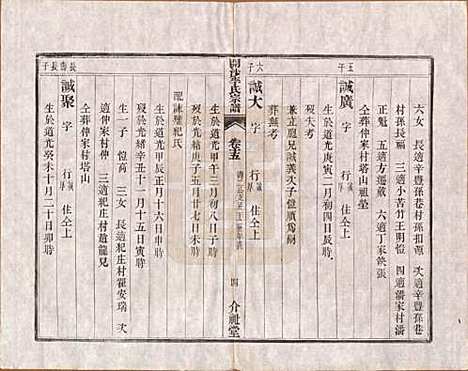 六女 長適辛豐孫巷村孫扣源 次適辛豐孫巷
村孫長福 三適小苦竹王明愷 四適潘家村潘
正魁 五適方邊戴 六適丁家
仝葬仲家村塔山祖塋
五子
誠廣 字 行 住仝上
生於道光庚寅二月初四日辰時
歿失考
兼立胞兄誠義次子愷順爲嗣
葬無考
六子
誠大 字 行 住仝上
開沙李氏宗譜
卷十五
四 介祉堂
生於道光甲午三月初八日子時
歿於光緒庚子五月廿七日未時
配諫壁祀氏
生於道光癸卯十月十三日辰時
歿於光緒辛丑十一月十五日寅時
生一子 愷蒿 三女 長適祀庄村霍安瑞 次
三適祀庄村趙龍兒
仝葬仲家村塔山
長壽長子
誠聚 字 行 住仝上
生於道光癸未十月二十日卯時